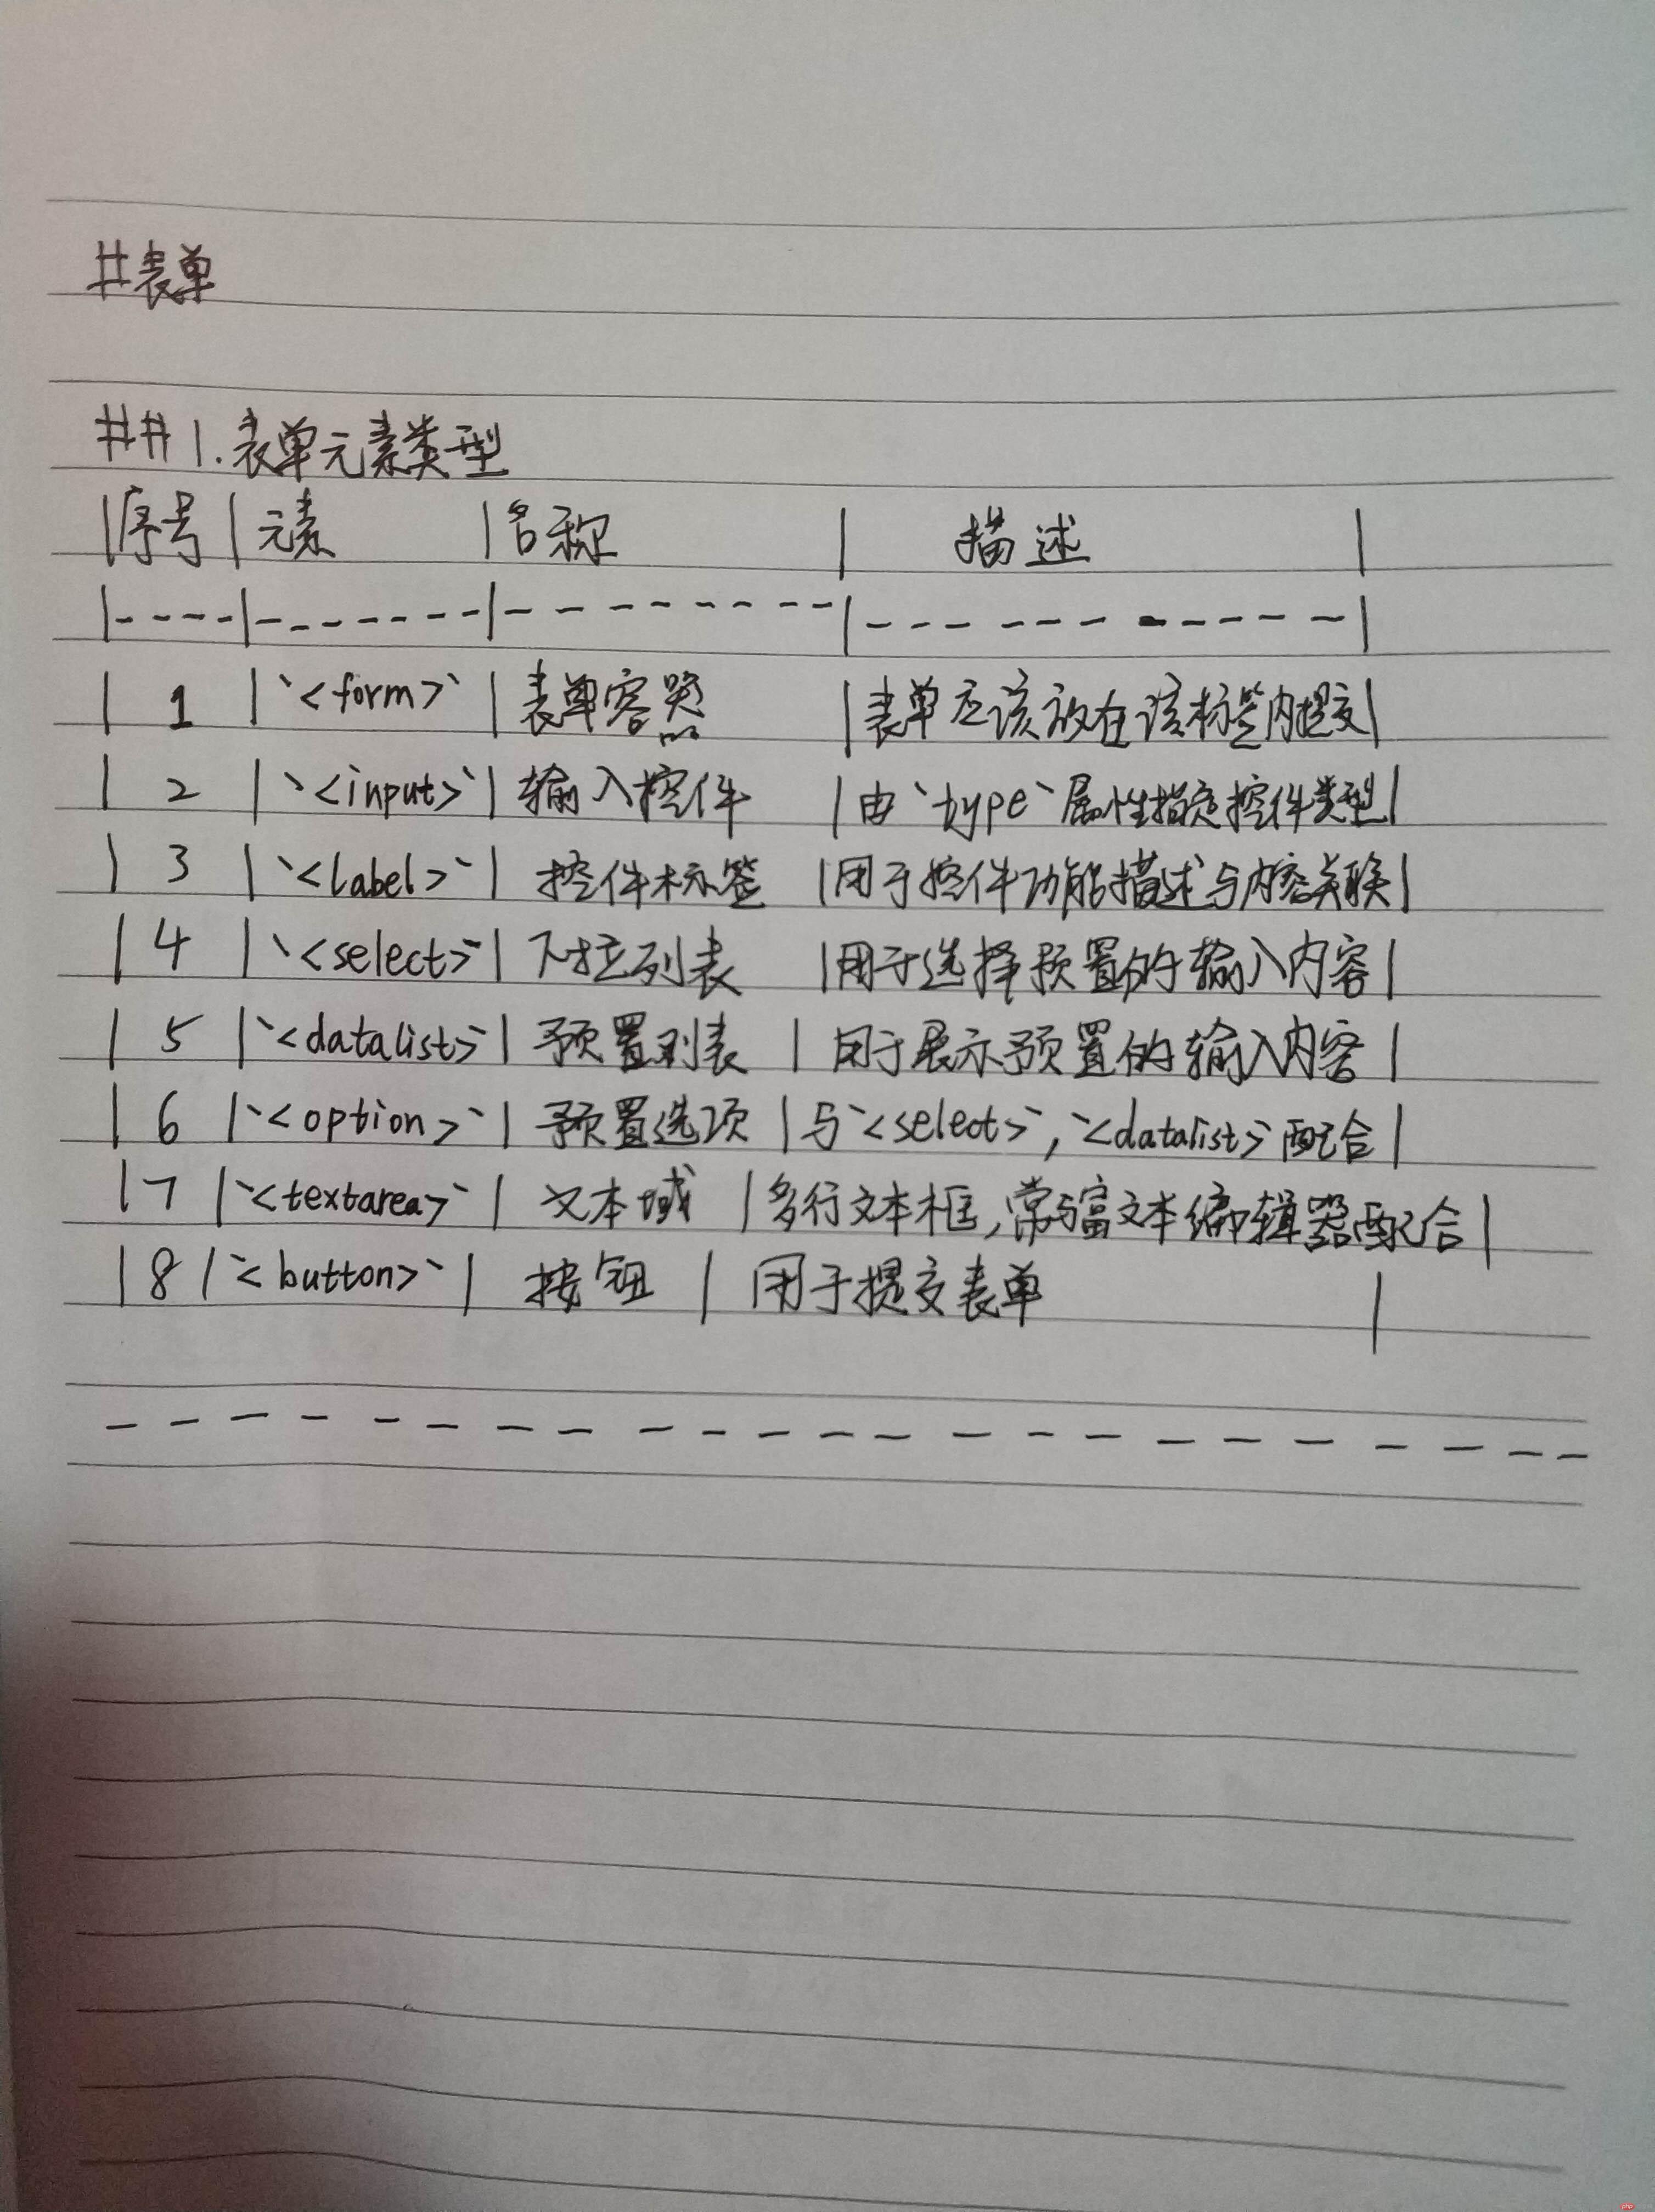 #表单
## 1.表单元素类型
|序号|元素|名称|描述|
|----|-------|---------|---------|
|1|`<form>`|表单容器|表单应该放在该标签内提交|
|2|`<input>`|输入控件|由`type`属性指定控件类型|
|3|`<label>`|控件标签|用于控件功能描述与内容关联|
|4|`<select>`|下拉列表|用于选择预置的输入内容|
|5|`<datalist>`|预置列表|用于展示预置的输入内容|
|6|`<option>`|预置选项|与`<select>`,`<datalist>`配合|
|7|`<textarea>`|文本域|多行文本框,常与富文本编辑器配合|
|8|`<button>`|按钮|用于提交表单|
------------------------
php